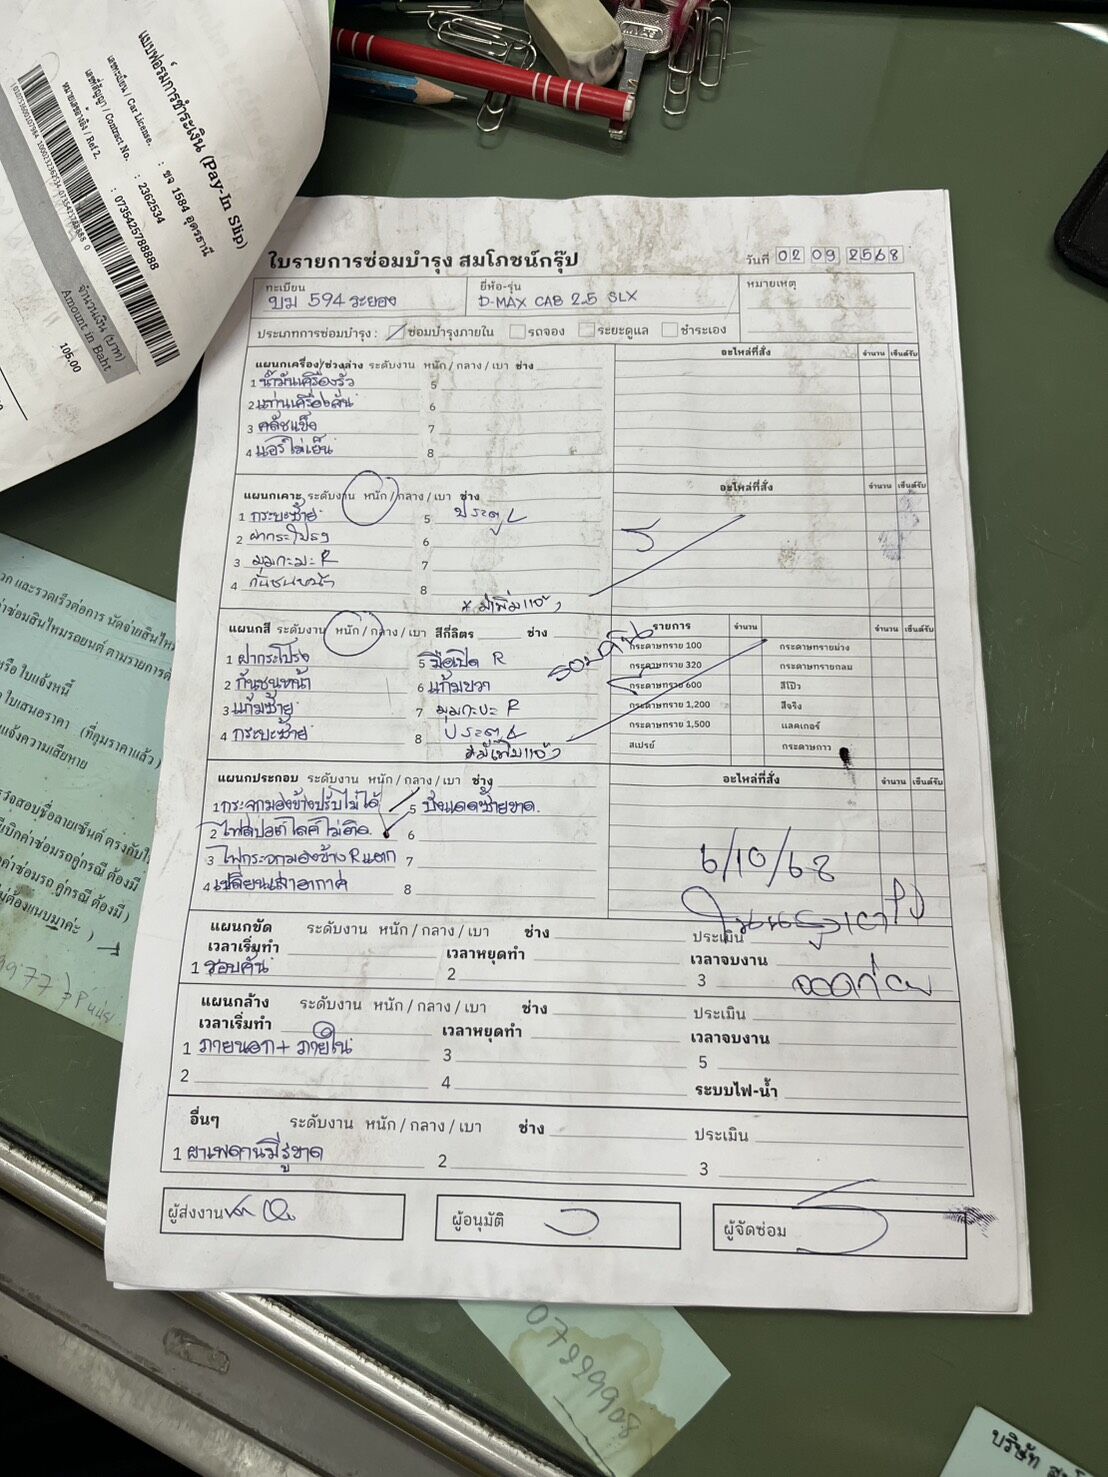 แบบฟอร์มการชำระเงิน (Pay-In Slip)
เลขทะเบียน / Car License. : ขจ 1584 อุดรธานี
เลขที่สัญญา / Contract No. : 2362534
หมายเลขอ้างอิง / Ref 2. : 0735425788888
จำนวนเงิน (บาท)
Amount in Baht
105.00
ใบรายการซ่อมบำรุง สมโภชน์กรุ๊ป
วันที่ 02 09 2568
ทะเบียน ยี่ห้อ-รุ่น หมายเหตุ
บม 594 ระยอง D-MAX CAB 2.5 SLX
ประเภทการซ่อมบำรุง : ซ่อมบำรุงภายใน รถจอง ระยะดูแล ชำระเอง
แผนกเครื่อง/ช่วงล่าง ระดับงาน หนัก / กลาง / เบา ช่าง อะไหล่ที่สั่ง จำนวน เซ็นต์รับ
1 น้ำมันเครื่องรั่ว 5
2 แท่นเครื่องสั่น 6
3 คลัชแข็ง 7
4 แอร์ไม่เย็น 8
แผนกเคาะ ระดับงาน หนัก / กลาง / เบา ช่าง อะไหล่ที่สั่ง จำนวน เซ็นต์รับ
1 กระบะซ้าย 5 ประตู L
2 ฝากระโปรง 6
3 มุมกะบะ R 7
4 กันชนหน้า 8
* มีเพิ่มแจ้ง
แผนกสี ระดับงาน หนัก / กลาง / เบา สีกี่ลิตร ช่าง รายการ จำนวน จำนวน เซ็นต์รับ
1 ฝากระโปรง 5 มือเปิด R กระดาษทราย 100 กระดาษทรายม่วง
รอบคัน
2 กันชนหน้า 6 แก้มขวา กระดาษทราย 320 กระดาษทรายกลม
3 แก้มซ้าย 7 มุมกะบะ R กระดาษทราย 600 สีโป๊ว
4 กระบะซ้าย 8 ประตู L กระดาษทราย 1,200 สีจริง
* มีเพิ่มแจ้ง กระดาษทราย 1,500 แลคเกอร์
สเปรย์ กระดาษกาว
แผนกประกอบ ระดับงาน หนัก / กลาง / เบา ช่าง อะไหล่ที่สั่ง จำนวน เซ็นต์รับ
1 กระจกมองข้างปรับไม่ได้ 5 บังแดดซ้ายขาด.
2 ไฟสปอตไลค์ไม่ติด 6
3 ไฟกระจกมองข้าง R แตก 7
4 เปลี่ยนเสาอากาศ 8
6/10/68
แผนกขัด ระดับงาน หนัก / กลาง / เบา ช่าง ประเมิน
เวลาเริ่มทำ เวลาหยุดทำ เวลาจบงาน
1 รอบคัน 2 3
จอดก่อน
แผนกล้าง ระดับงาน หนัก / กลาง / เบา ช่าง ประเมิน
เวลาเริ่มทำ เวลาหยุดทำ เวลาจบงาน
1 ภายนอก + ภายใน 3 5
2 4 ระบบไฟ-น้ำ
อื่นๆ ระดับงาน หนัก / กลาง / เบา ช่าง ประเมิน
1 ผาเพดานมีรูขาด 2 3
ผู้ส่งงาน ผู้อนุมัติ ผู้จัดซ่อม
และรวดเร็วต่อการ นัดจ่ายสินไหม
ค่าซ่อมสินไหมรถยนต์ ตามรายการ
หรือ ใบแจ้งหนี้
ใบเสนอราคา (ที่คุมราคาแล้ว)
แจ้งความเสียหาย
บริษัท